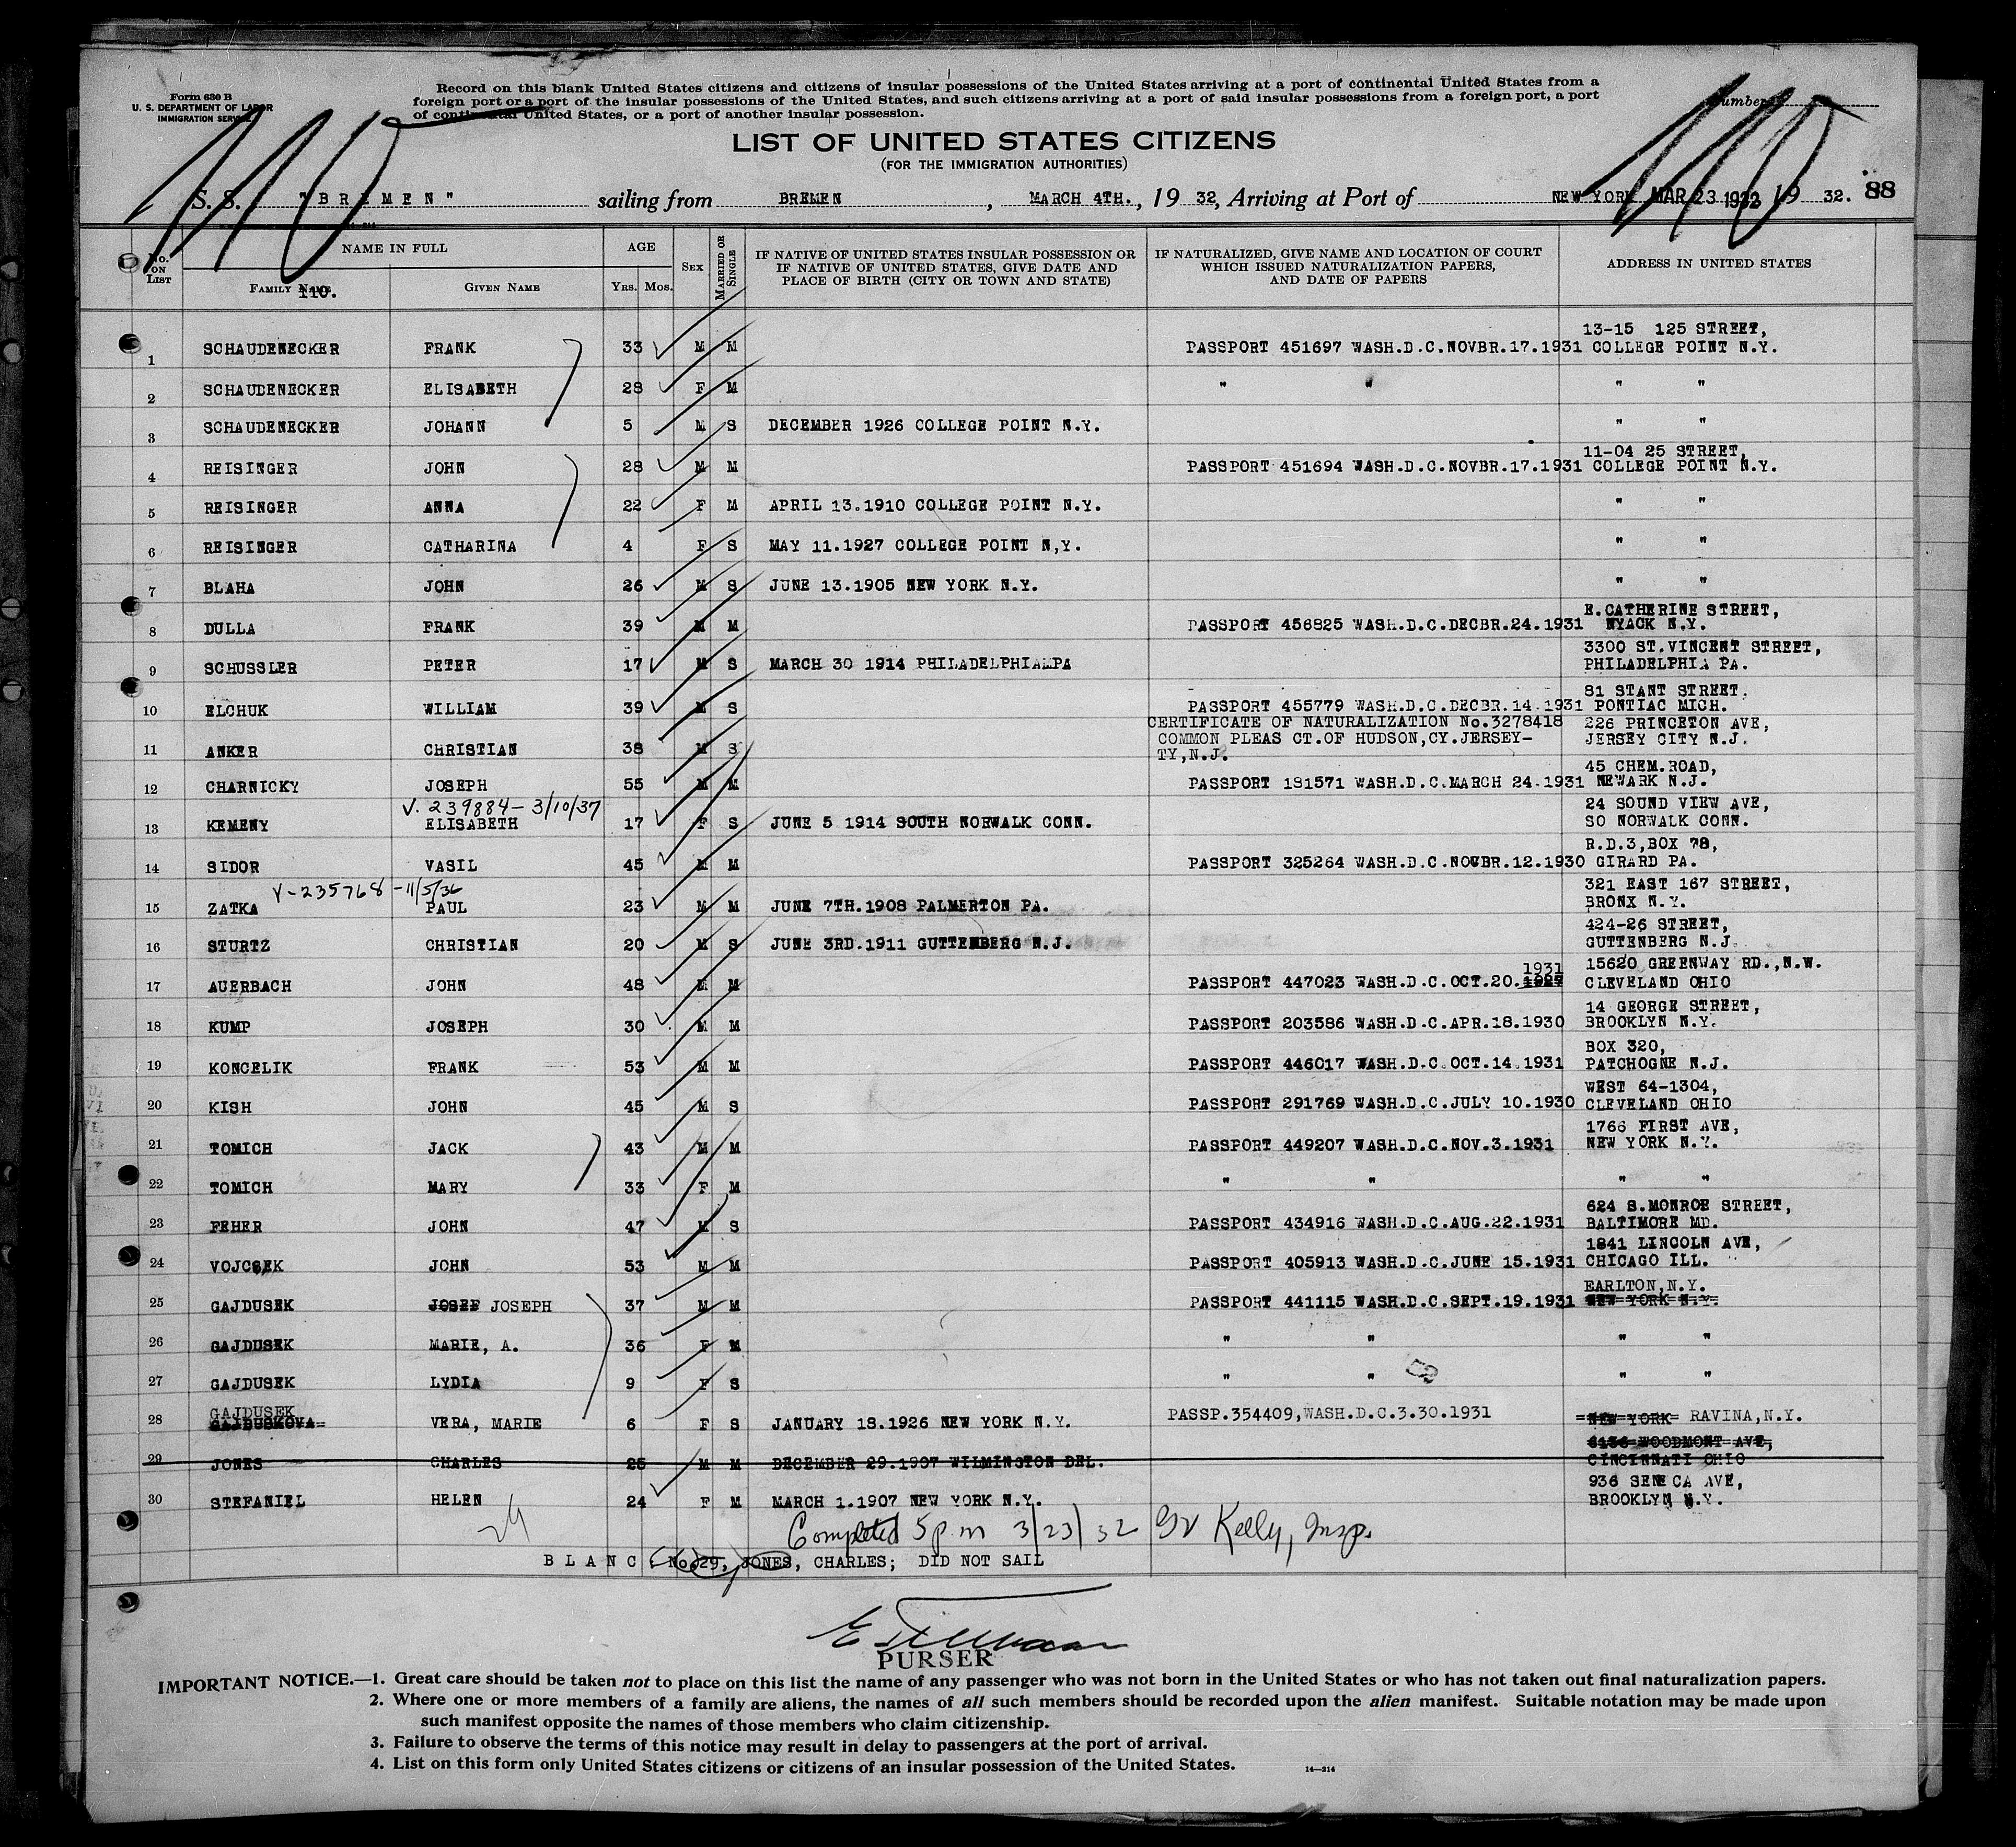 Form 630 B
U. S. DEPARTMENT OF LABOR
IMMIGRATION SERVICE
Record on this blank United States citizens and citizens of insular possessions of the United States arriving at a port of continental United States from a
foreign port or a port of the insular possessions of the United States, and such citizens arriving at a port of said insular possessions from a foreign port, a port
of continental United States, or a port of another insular possession.
Number
110
110
LIST OF UNITED STATES CITIZENS
(FOR THE IMMIGRATION AUTHORITIES)
S. S. "BREMEN" sailing from BREMEN, MARCH 4TH., 19 32, Arriving at Port of NEW YORK MAR 23 1932 19 32. 88
No. ON LIST
NAME IN FULL
FAMILY NAME 110. GIVEN NAME
AGE
YRS. MOS.
SEX
MARRIED OR SINGLE
IF NATIVE OF UNITED STATES INSULAR POSSESSION OR
IF NATIVE OF UNITED STATES, GIVE DATE AND
PLACE OF BIRTH (CITY OR TOWN AND STATE)
IF NATURALIZED, GIVE NAME AND LOCATION OF COURT
WHICH ISSUED NATURALIZATION PAPERS,
AND DATE OF PAPERS
ADDRESS IN UNITED STATES
13-15 125 STREET,
1 SCHAUDENECKER FRANK 33 M M PASSPORT 451697 WASH.D.C.NOVBR.17.1931 COLLEGE POINT N.Y.
2 SCHAUDENECKER ELISABETH 28 F M " " " "
3 SCHAUDENECKER JOHANN 5 M S DECEMBER 1926 COLLEGE POINT N.Y. " "
11-04 25 STREET,
4 REISINGER JOHN 28 M M PASSPORT 451694 WASH.D.C.NOVBR.17.1931 COLLEGE POINT N.Y.
5 REISINGER ANNA 22 F M APRIL 13.1910 COLLEGE POINT N.Y. " "
6 REISINGER CATHARINA 4 F S MAY 11.1927 COLLEGE POINT N,Y. " "
7 BLAHA JOHN 26 M S JUNE 13.1905 NEW YORK N.Y. " "
E.CATHERINE STREET,
8 DULLA FRANK 39 M M PASSPORT 456825 WASH.D.C.DECBR.24.1931 NYACK N.Y.
3300 ST.VINCENT STREET,
9 SCHUSSLER PETER 17 M S MARCH 30 1914 PHILADELPHIA PA PHILADELPHIA PA.
81 STANT STREET.
10 ELCHUK WILLIAM 39 M S PASSPORT 455779 WASH.D.C.DECBR.14.1931 PONTIAC MICH.
CERTIFICATE OF NATURALIZATION No.3278418 226 PRINCETON AVE,
11 ANKER CHRISTIAN 38 M S COMMON PLEAS CT.OF HUDSON,CY.JERSEY- JERSEY CITY N.J.
TY,N.J.
45 CHEM.ROAD,
12 CHARNICKY JOSEPH 55 M M PASSPORT 181571 WASH.D.C.MARCH 24.1931 NEWARK N.J.
V. 239884 - 3/10/37 24 SOUND VIEW AVE,
13 KEMENY ELISABETH 17 F S JUNE 5 1914 SOUTH NORWALK CONN. SO NORWALK CONN.
R.D.3,BOX 78,
14 SIDOR VASIL 45 M M PASSPORT 325264 WASH.D.C.NOVBR.12.1930 GIRARD PA.
V-235768 - 11/5/36 321 EAST 167 STREET,
15 ZATKA PAUL 23 M M JUNE 7TH.1908 PALMERTON PA. BRONX N.Y.
424-26 STREET,
16 STURTZ CHRISTIAN 20 M S JUNE 3RD.1911 GUTTENBERG N.J. GUTTENBERG N.J.
1931 15620 GREENWAY RD.,N.W.
17 AUERBACH JOHN 48 M M PASSPORT 447023 WASH.D.C.OCT.20.1927 CLEVELAND OHIO
14 GEORGE STREET,
18 KUMP JOSEPH 30 M M PASSPORT 203586 WASH.D.C.APR.18.1930 BROOKLYN N.Y.
BOX 320,
19 KONCELIK FRANK 53 M M PASSPORT 446017 WASH.D.C.OCT.14.1931 PATCHOGNE N.J.
WEST 64-1304,
20 KISH JOHN 45 M S PASSPORT 291769 WASH.D.C.JULY 10.1930 CLEVELAND OHIO
1766 FIRST AVE,
21 TOMICH JACK 43 M M PASSPORT 449207 WASH.D.C.NOV.3.1931 NEW YORK N.Y.
22 TOMICH MARY 33 F M " " " "
624 S.MONROE STREET,
23 FEHER JOHN 47 M S PASSPORT 434916 WASH.D.C.AUG.22.1931 BALTIMORE MD.
1841 LINCOLN AVE,
24 VOJCSEK JOHN 53 M M PASSPORT 405913 WASH.D.C.JUNE 15.1931 CHICAGO ILL.
EARLTON,N.Y.
25 GAJDUSEK JOSEF JOSEPH 37 M M PASSPORT 441115 WASH.D.C.SEPT.19.1931 NEW YORK N.Y.
26 GAJDUSEK MARIE, A. 36 F M " " " "
27 GAJDUSEK LYDIA 9 F S " " " "
GAJDUSEK
28 GAJDUSKOVA VERA, MARIE 6 F S JANUARY 18.1926 NEW YORK N.Y. PASSP.354409,WASH.D.C.3.30.1931 NEW YORK RAVINA,N.Y.
6136 WOODMONT AVE,
29 JONES CHARLES 25 M M DECEMBER 29.1907 WILMINGTON DEL. CINCINNATI OHIO
936 SENECA AVE,
30 STEFANIEL HELEN 24 F M MARCH 1.1907 NEW YORK N.Y. BROOKLYN N.Y.
Completed 5 pm 3/23/32 Kelly, Insp.
BLANC: No.29, JONES, CHARLES; DID NOT SAIL
PURSER
IMPORTANT NOTICE.—1. Great care should be taken not to place on this list the name of any passenger who was not born in the United States or who has not taken out final naturalization papers.
2. Where one or more members of a family are aliens, the names of all such members should be recorded upon the alien manifest. Suitable notation may be made upon
such manifest opposite the names of those members who claim citizenship.
3. Failure to observe the terms of this notice may result in delay to passengers at the port of arrival.
4. List on this form only United States citizens or citizens of an insular possession of the United States.
14—214